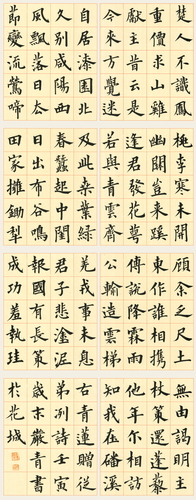 楚人不識鳳
重價求山雞
獻主昔云是
今來方覺迷
自居漆園北
久別咸陽西
風飄落日去
節變流鶯啼
桃李寒未開
幽關豈來蹊
逢君發花萼
若與青雲齊
及此桑葉綠
春蠶起中閨
日出布谷鳴
田家擁鋤犁
顧余乏尺土
東作誰相攜
傅說降霖雨
公輸造雲梯
羌戎事未息
君子悲塗泥
報國有長策
成功羞執珪
無由謁明主
杖策還蓬藜
他年爾相訪
知我在磻溪
右青蓮贈從
弟冽詩壬寅
歲末嚴青書
於花城